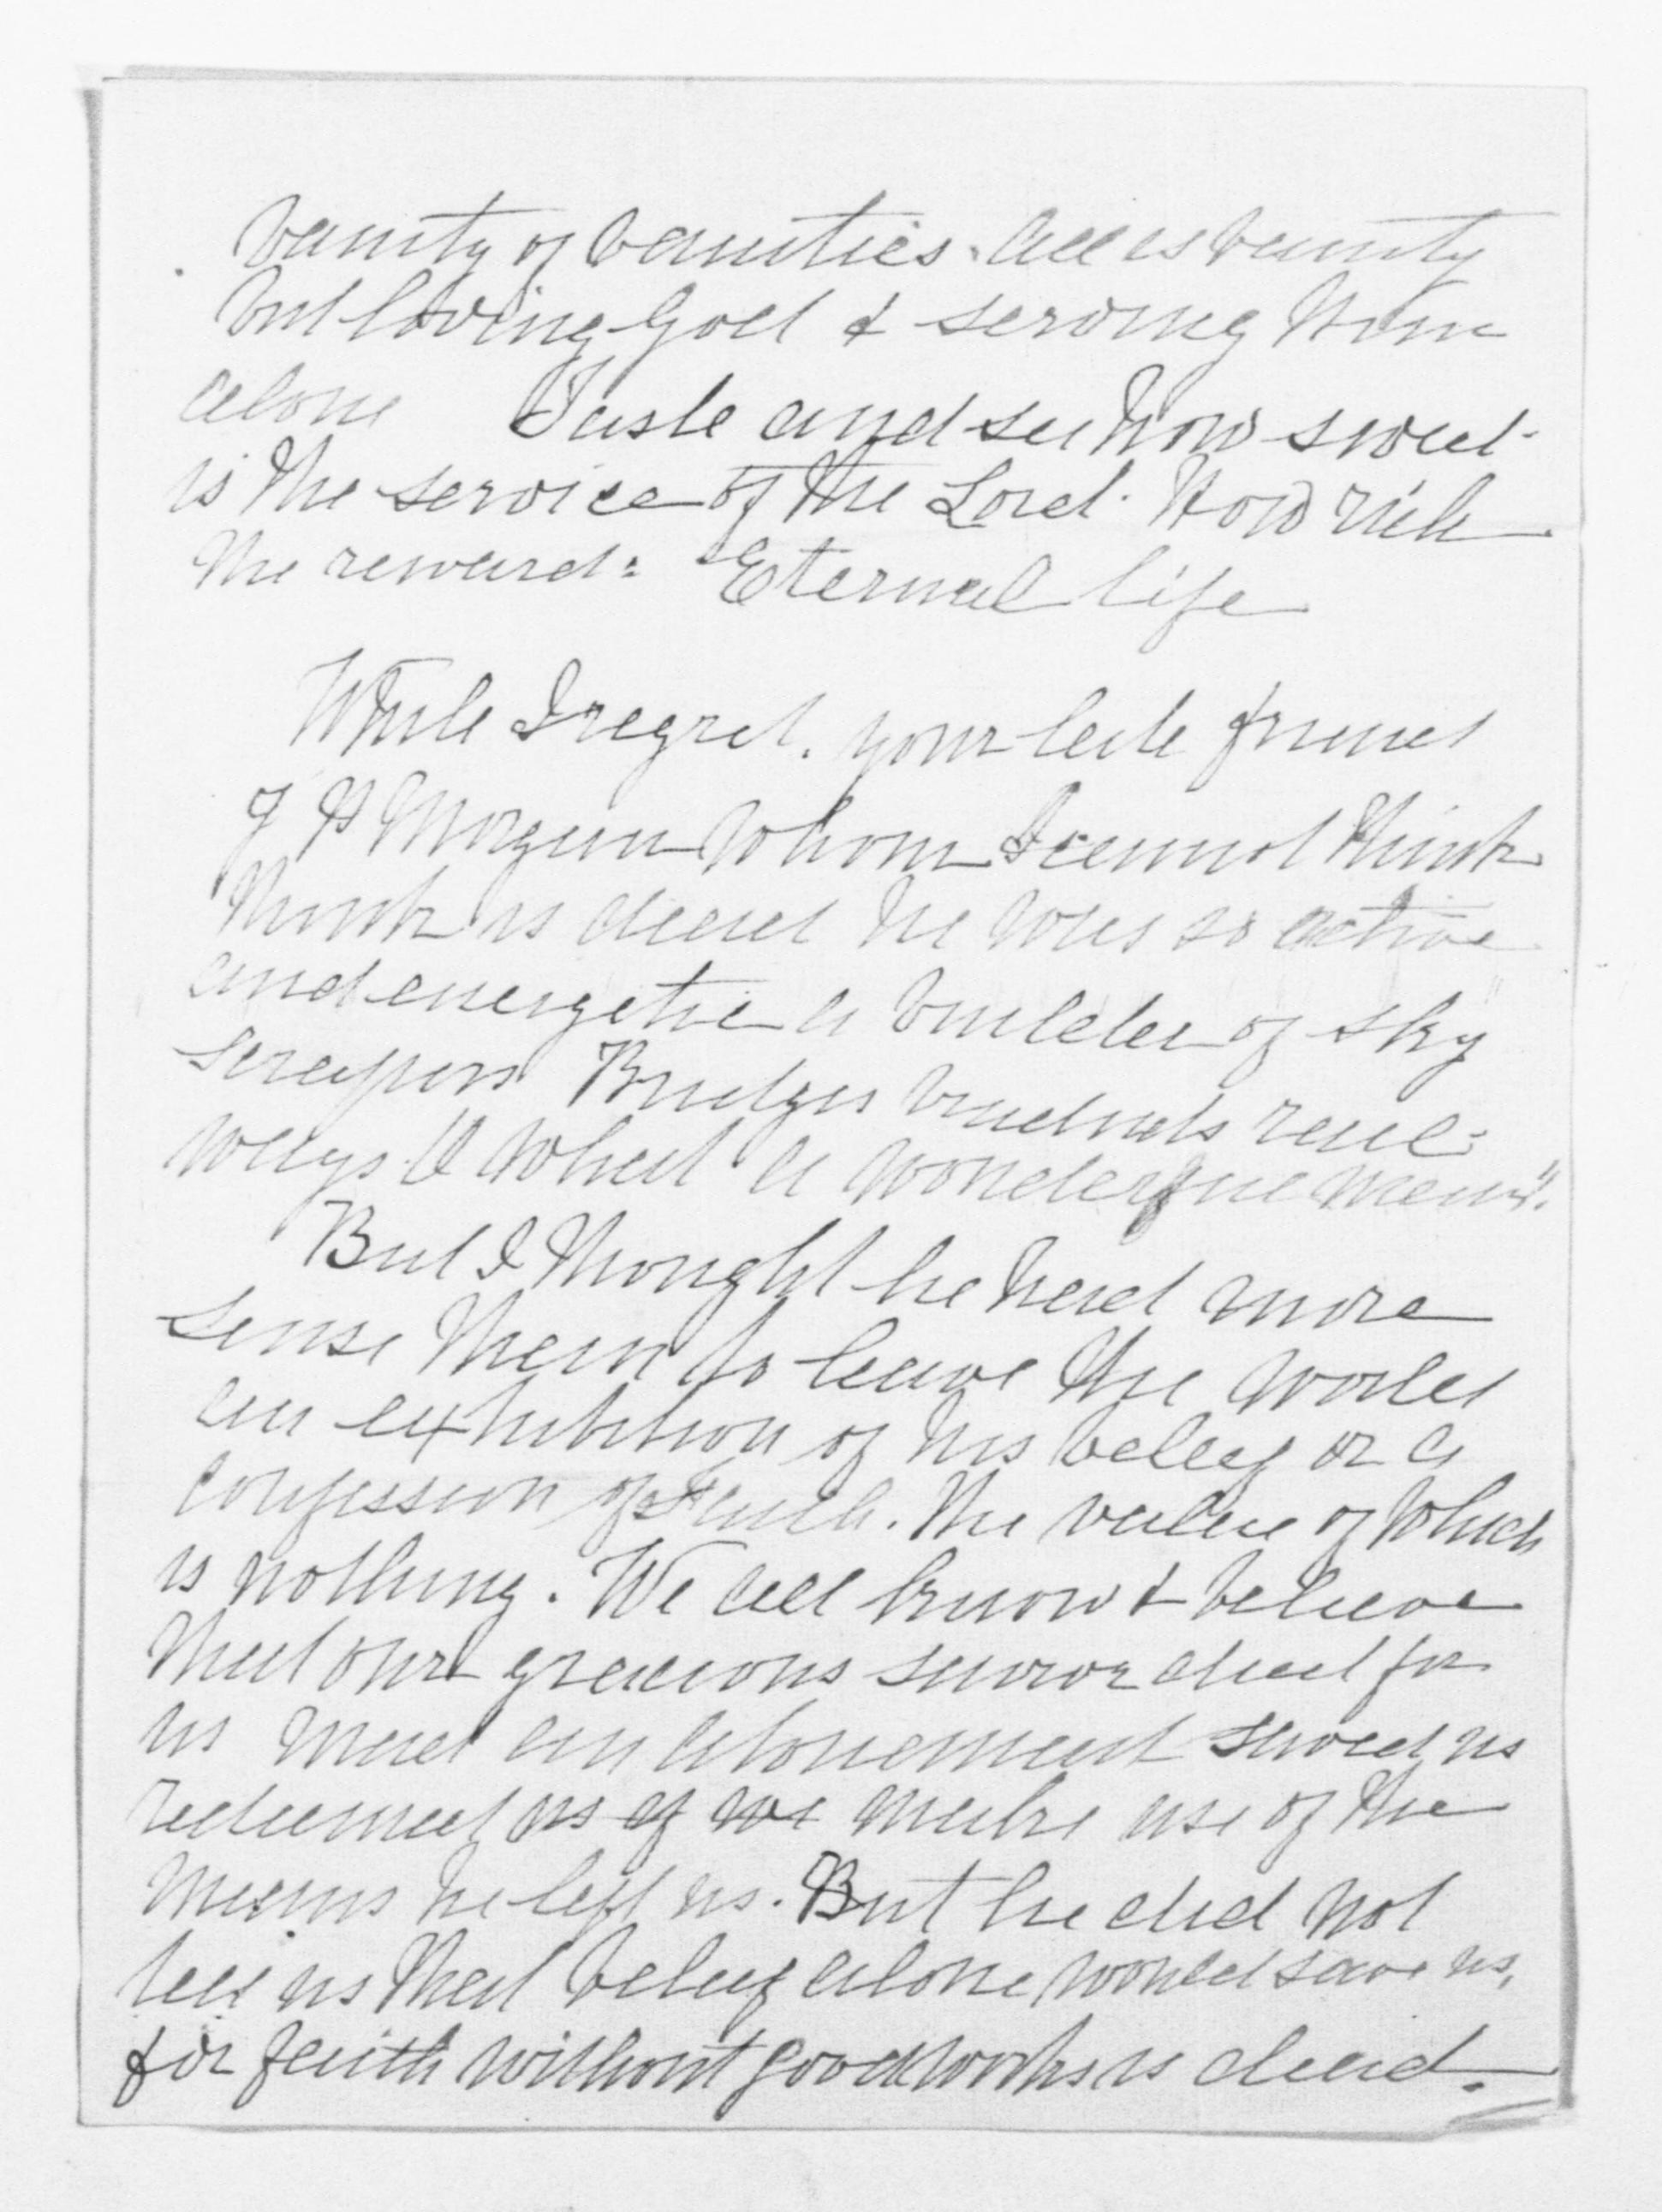 Vanity of Vanities. All is Vanity
but loving God & serving Him
alone Taste and see how sweet
is the service of the Lord. How rich
the reward: Eternal life
While I regret. your late friend
J P Morgan whom I cannot think
think is dead he was so active
and energetic a builder of sky
scrapers Bridges rail-
ways & What a wonderful man".
But I thought he had more
sense than to leave the world
an exhibition of his belief or a
confession of Faith. The value of which
is nothing. We all know & believe
that our gracious savior died for
us made an atonement saved us
redeemed us if we make use of the
means he left us. But he did not
tell us that belief alone would save us,
for faith without good works is dead.